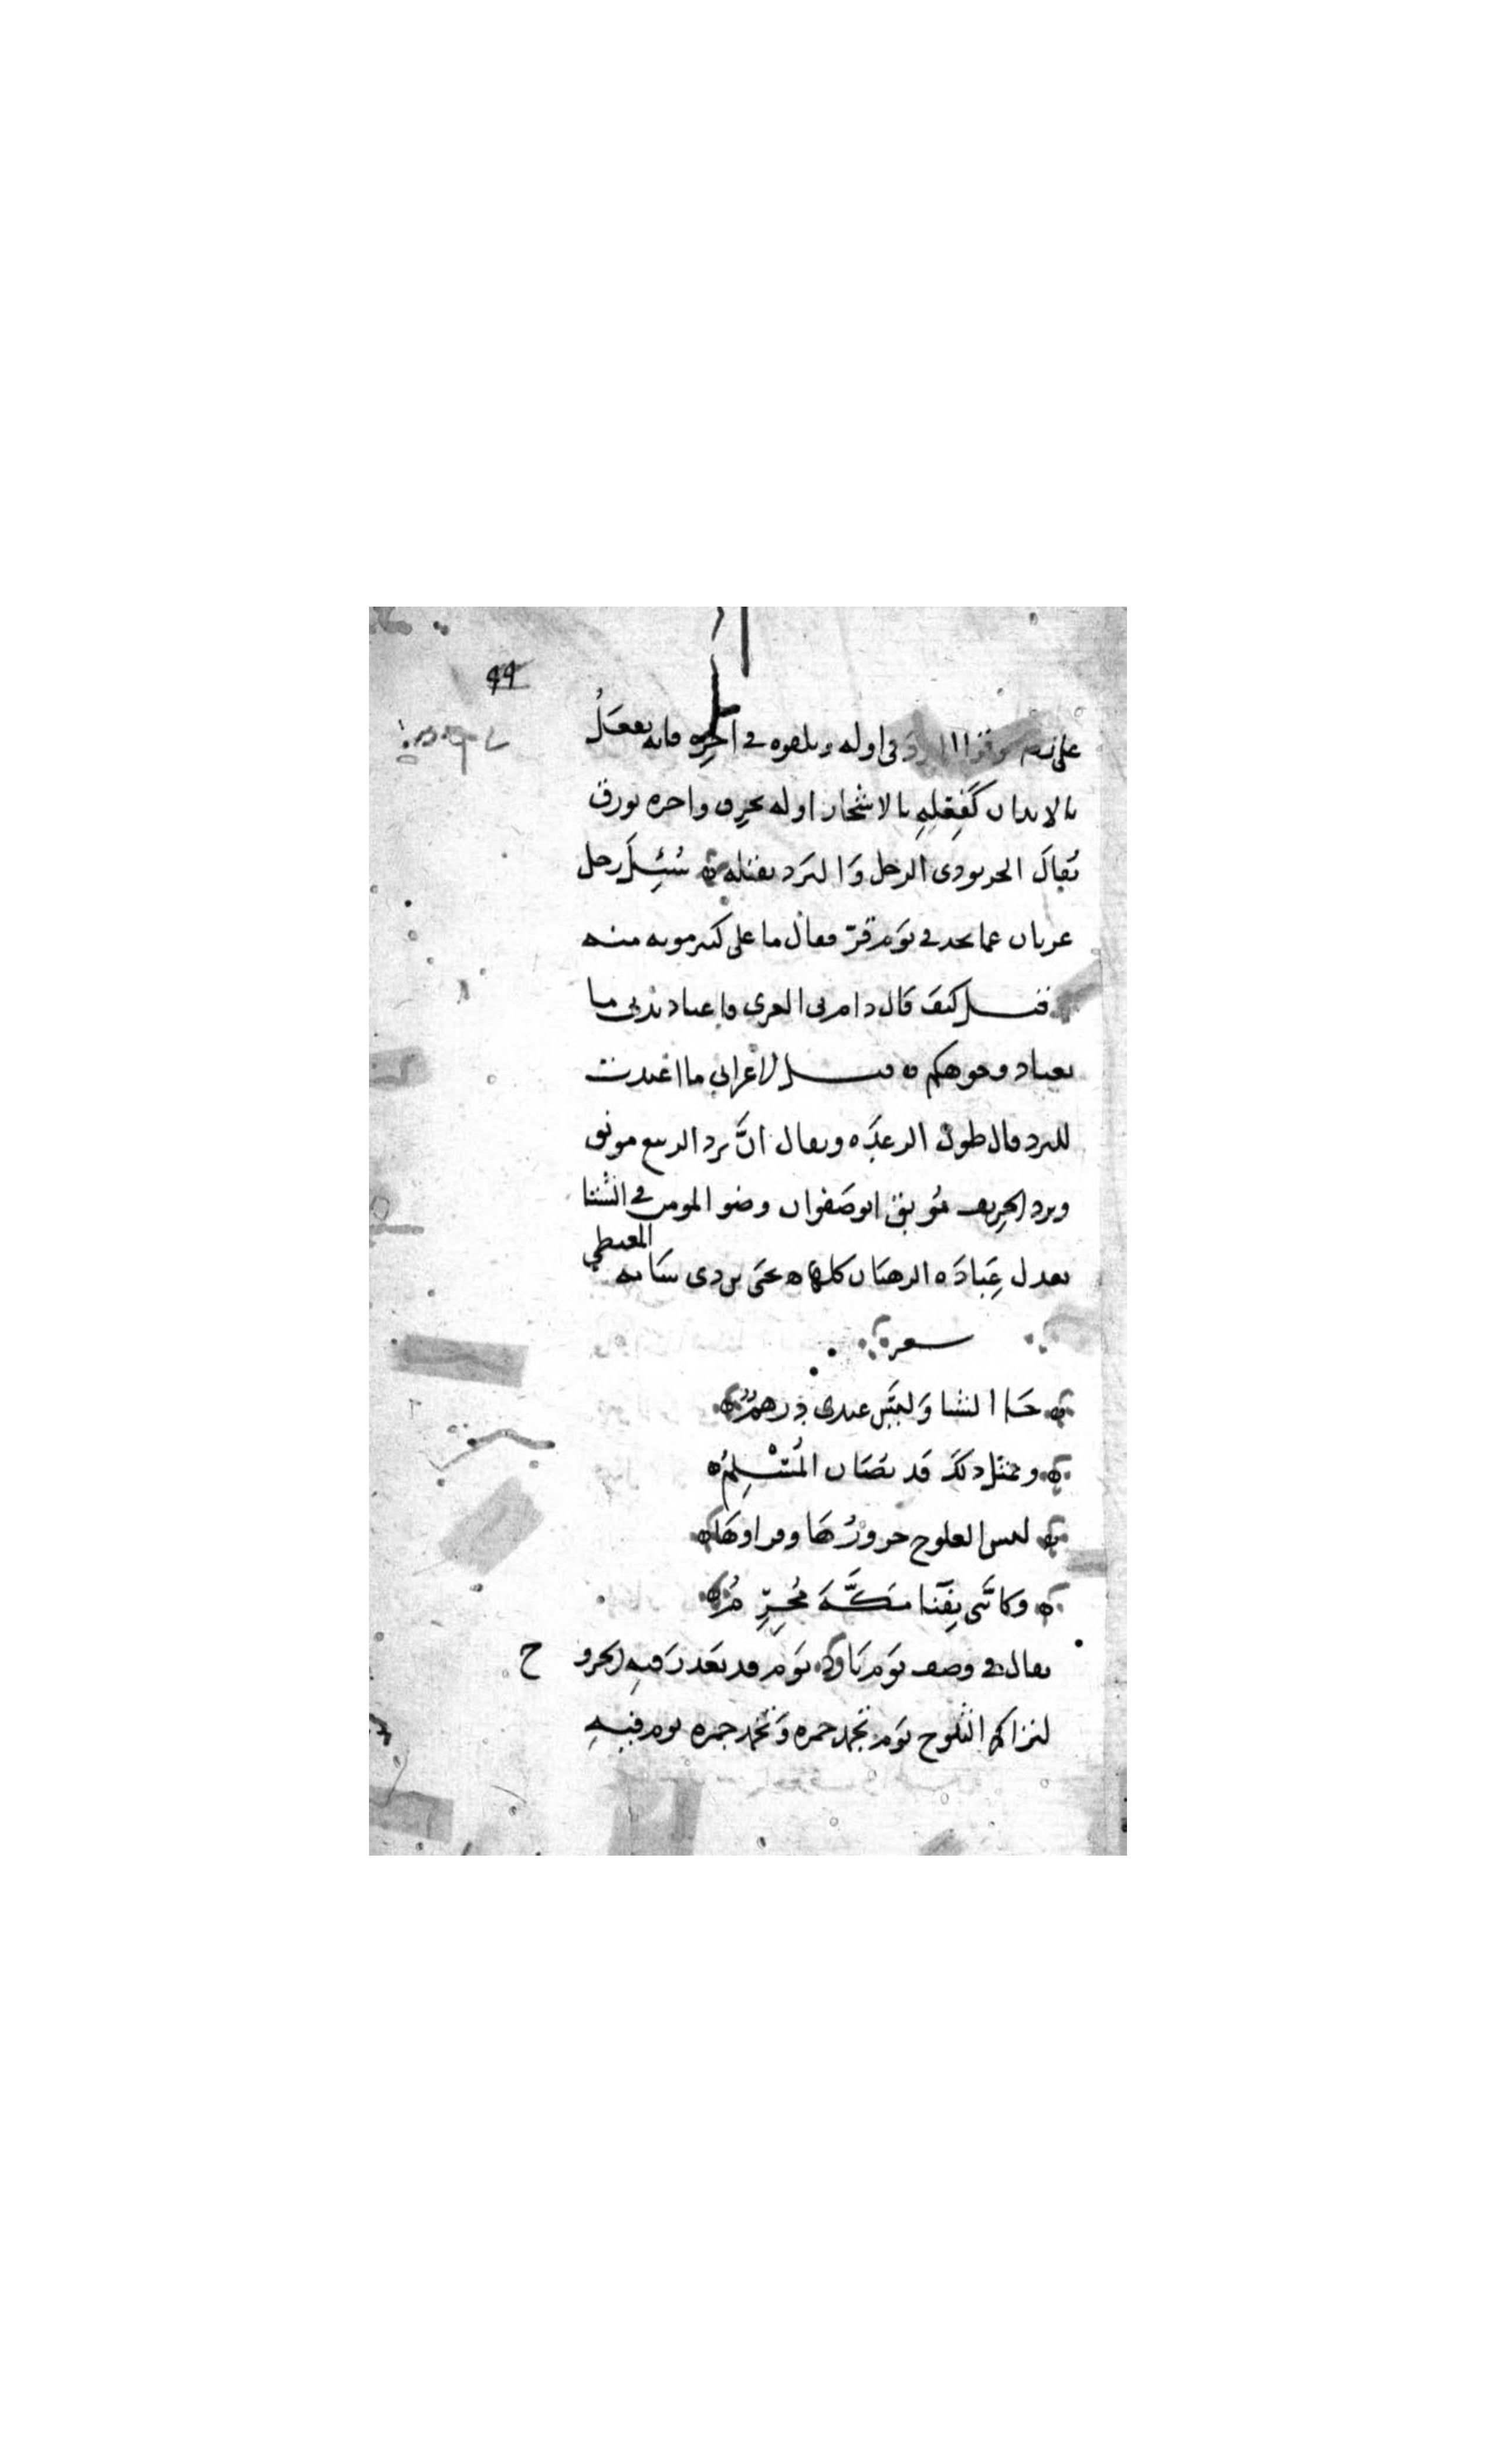 99
توقوا البرد فى اوله وتلقوه فى اخره فانه يفعل
بالابدان كفعله بالاشجار اوله يحرق واخره يورق
يقال الحر يوذى الرجل والبرد يقتله سئل رجل
عريان عما يجد فى يوم قر فقال ما على كبير مونه منه
فقيل كيف قال دام بى العرى فاعتاد بدنى ما
يعتاد وجوهكم قيل لاعرابى ما اعددت
للبرد قال طول الرعدة ويقال ان برد الربيع مونق
وبرد الخريف موبق ابو صفوان وضو المومن فى الشتا
يعدل عبادة الرهبان كلها المعيطى
شعر
جا الشتا وليس عندى درهم
وبمثل ذلك قد يصاب المسلم
لبس العلوج خزوزها وفراوها
وكاننى بفنا مكة محرم
يقال فى وصف يوم بارد يوم قد تعذر فيه الخروج
لتراكم الثلوج يوم تجمد خمره وتخمد جمره يوم فيه